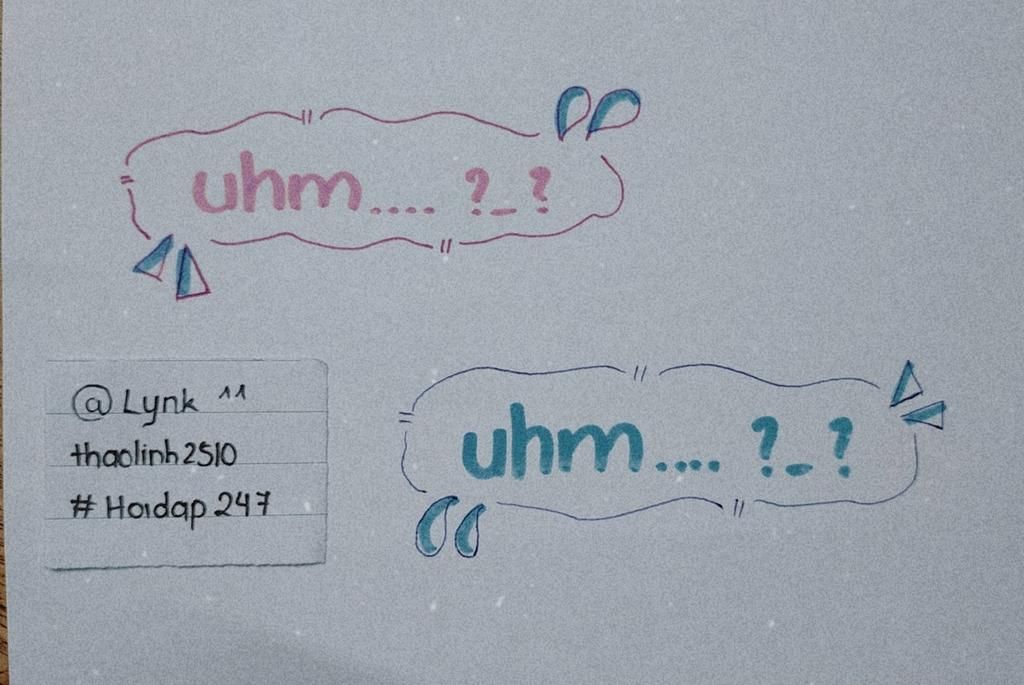 uhm.... ?_?
@Lynk ^^
thaolinh2510
# Hoidap 247
uhm.... ?_?